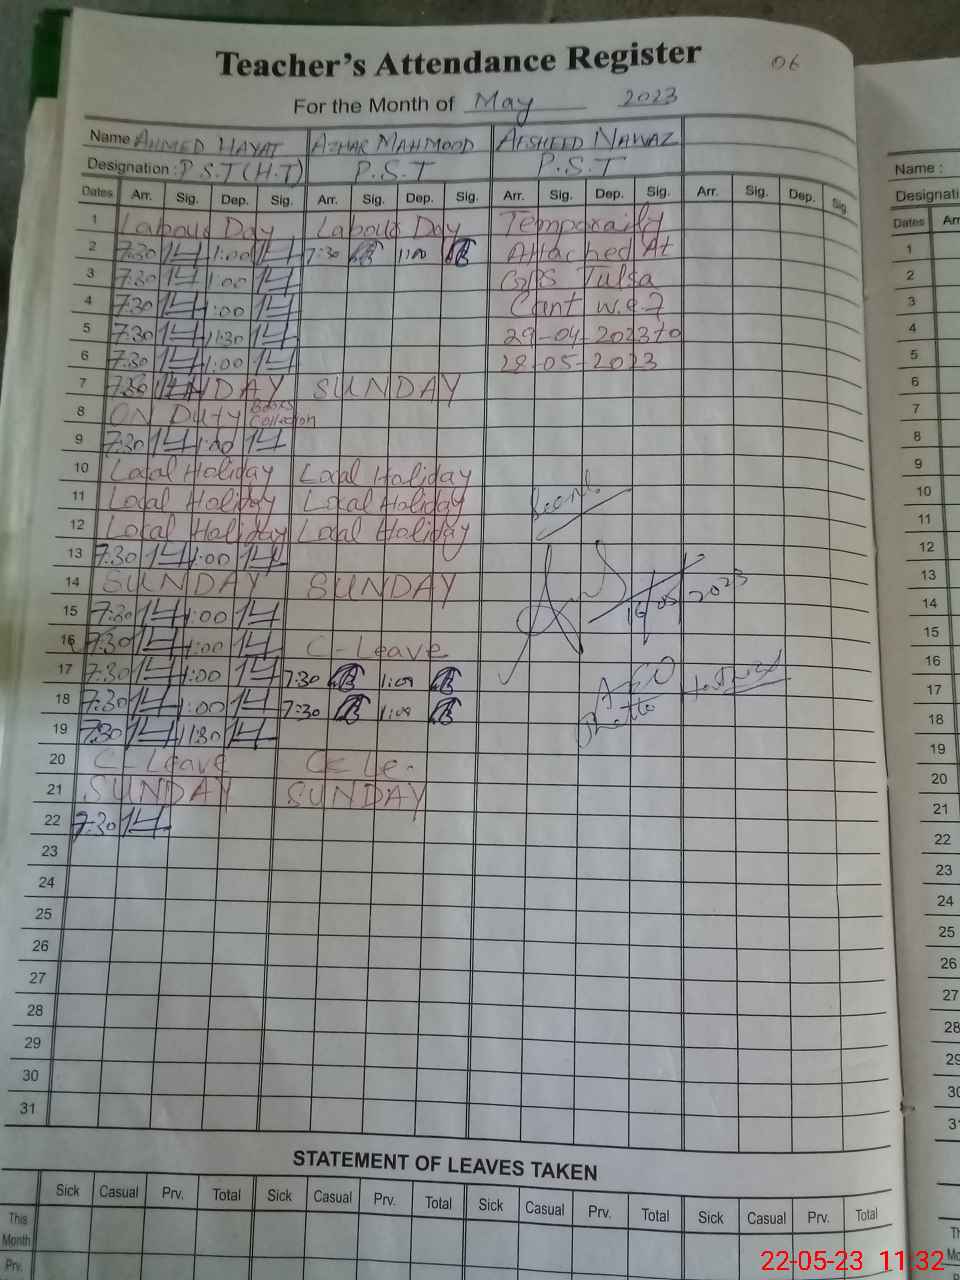 Teacher's Attendance Register
06
For the Month of May 2023
Name AHMED HAYAT AZHAR MAHMOOD AFSHEED NAWAZ
Designation : P.S.T (H.T) P.S.T P.S.T
Dates Arr. Sig. Dep. Sig. Arr. Sig. Dep. Sig. Arr. Sig. Dep. Sig. Arr. Sig. Dep. Sig.
1 Labour Day Labour Day Temporaily
2 7:30 1:00 7:30 1:00 Attached At
3 7:30 1:00 GPS Tulsa
4 7:30 1:00 Cant w.e.f
5 7:30 11:30 29-04-2023 to
6 7:30 1:00 28-05-2023
7 SUNDAY SUNDAY
8 ON Duty Books Collection
9 7:30 1:00
10 Local Holiday Local Holiday
11 Local Holiday Local Holiday
12 Local Holiday Local Holiday
13 7:30 1:00
14 SUNDAY SUNDAY
15 7:30 1:00
16 7:30 1:00 C-Leave
16/05/2023
17 7:30 1:00 7:30 1:00
AEO
18 7:30 1:00 7:30 1:00
19 7:30 11:30
20 C-Leave C-Le.
21 SUNDAY SUNDAY
22 7:30
23
24
25
26
27
28
29
30
31
STATEMENT OF LEAVES TAKEN
Sick Casual Prv. Total Sick Casual Prv. Total Sick Casual Prv. Total Sick Casual Prv. Total
This
Month
Prv.
Name :
Designati
Dates Arr
1
2
3
4
5
6
7
8
9
10
11
12
13
14
15
16
17
18
19
20
21
22
23
24
25
26
27
28
29
30
31
22-05-23 11:32